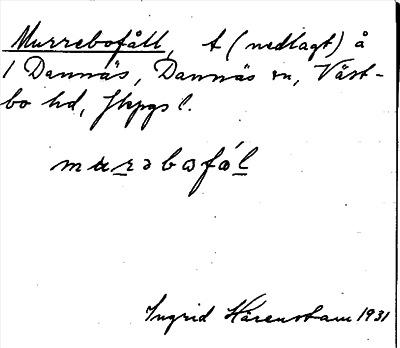 Murrebofåll, t (nedlagt) å
1 Dannäs, Dannäs sn, Väst-
bo hd, Jkpgs l.
murəbofál
Ingrid Härenstam 1931